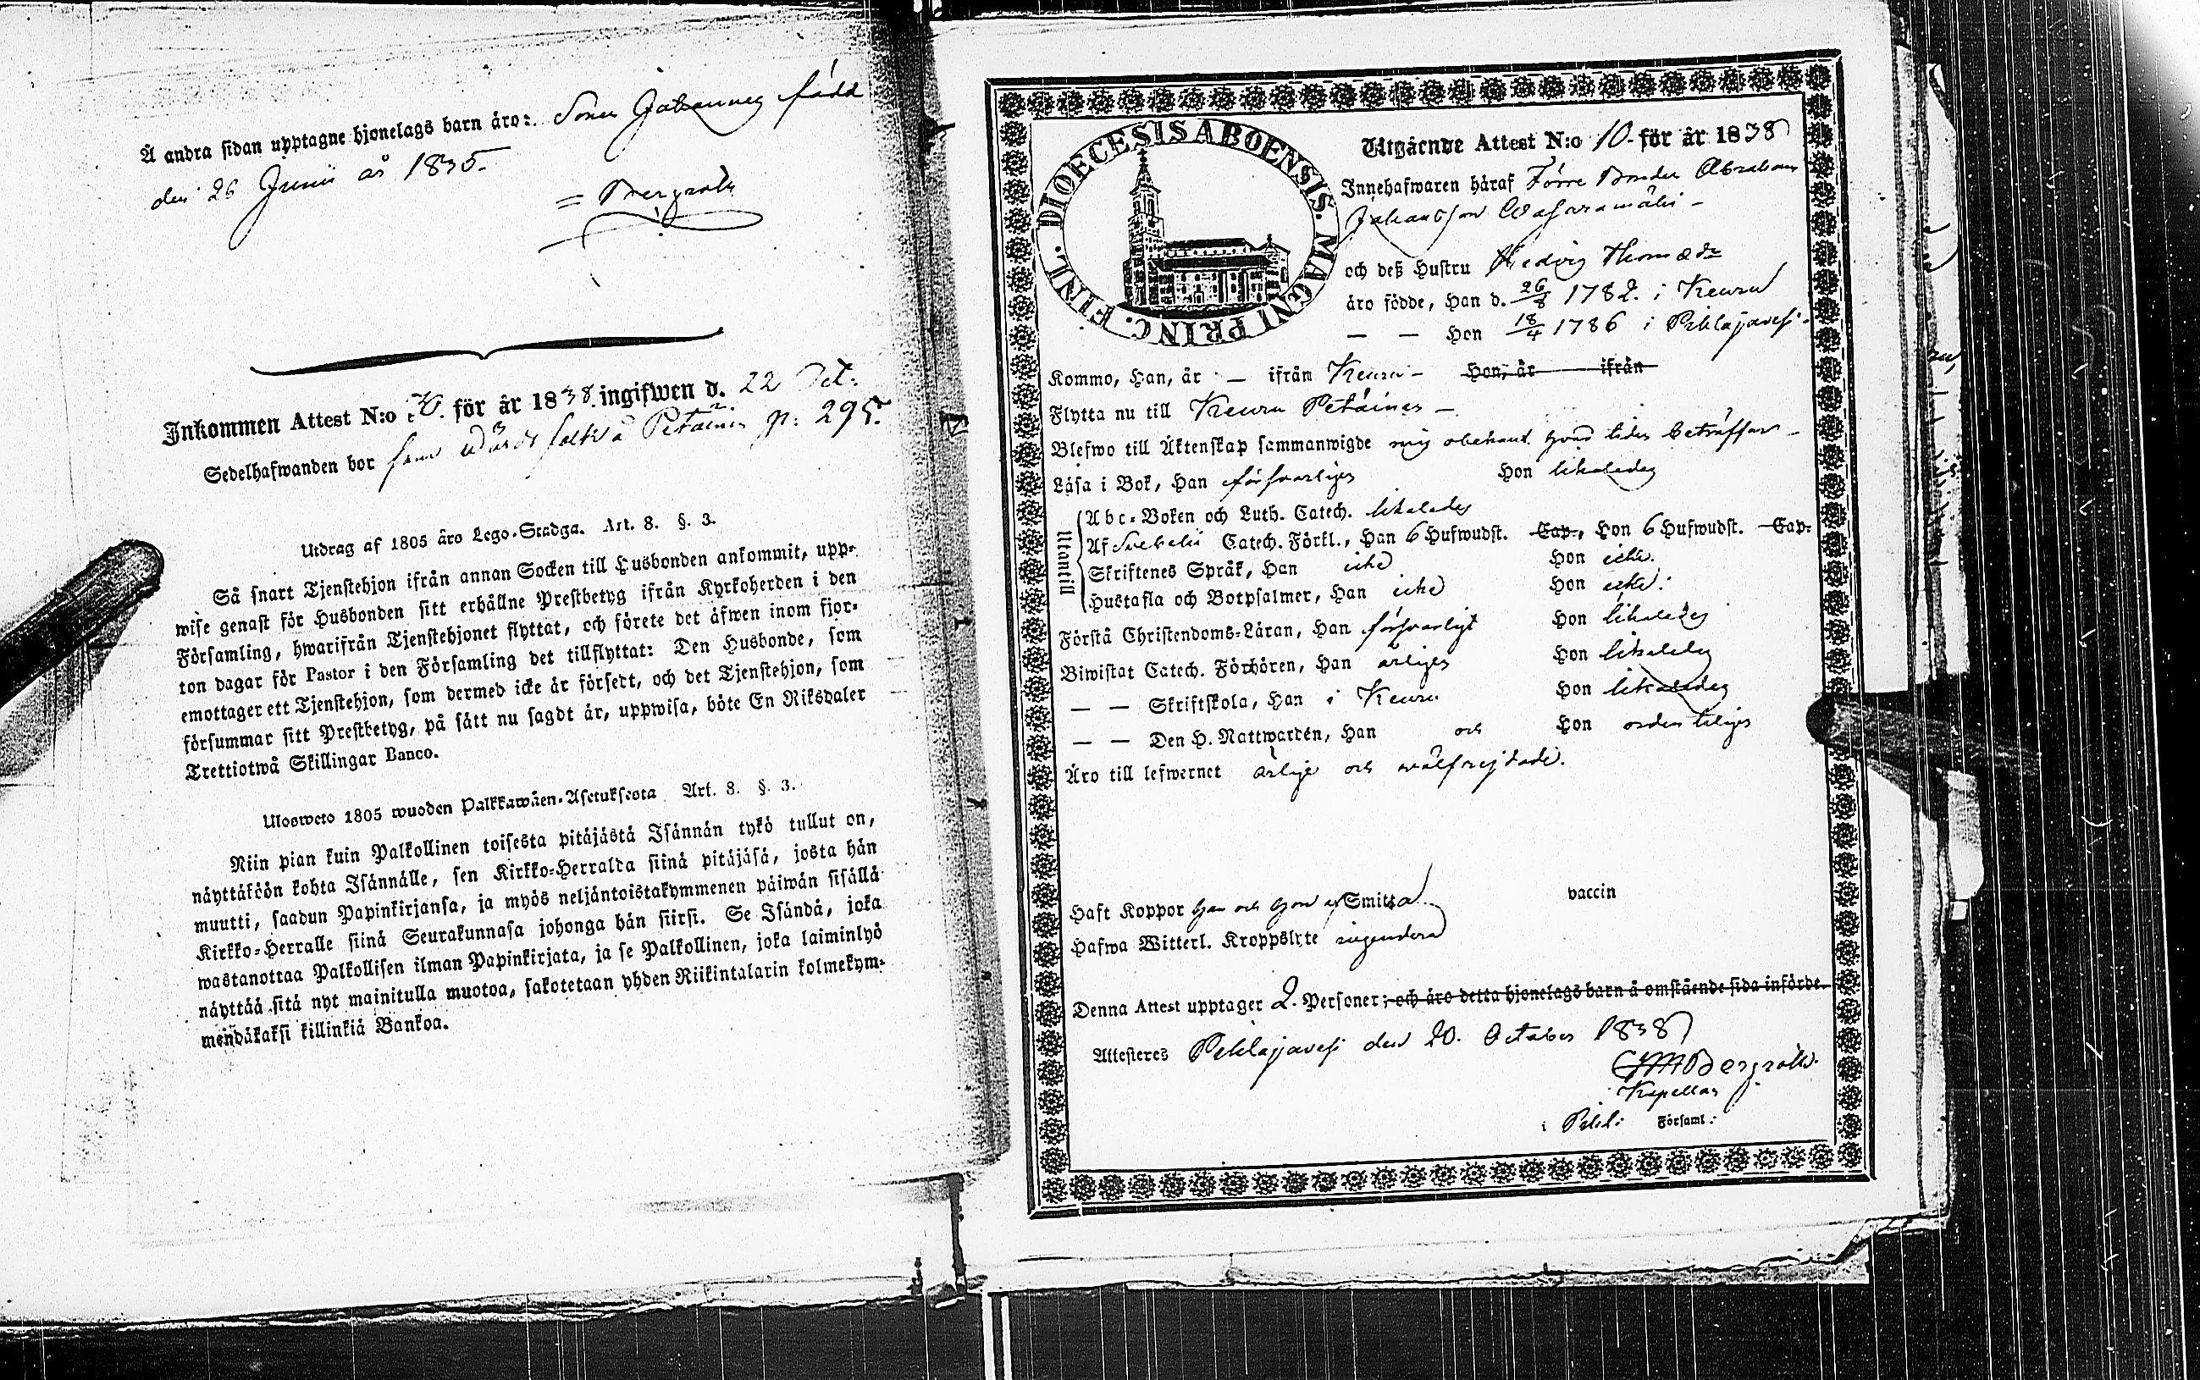 Å andra sidan upptagne hjonelags barn äro: Sonen Johannes född
den 26 Junii år 1835.
= Bergroth
Inkommen Attest N:o för år 1838 ingifwen d. 22 Oct:
Sedelhafwanden bor som å Petäinen p: 295.
Utdrag af 1805 års Lego-Stadga. Art. 8. §. 3.
Så snart Tjenstehjon ifrån annan Socken till Husbonden ankommit, upp-
wise genast för Husbonden sitt erhållne Prestbetyg ifrån Kyrkoherden i den
Församling, hwarifrån Tjenstehjonet flyttat, och förete det äfwen inom fjor-
ton dagar för Pastor i den Församling det tillflyttat: Den Husbonde, som
emottager ett Tjenstehjon, som dermed icke är försedt, och det Tjenstehjon, som
försummar sitt Prestbetyg, på sätt nu sagdt är, uppwisa, böte En Riksdaler
Trettiotwå Skillingar Banco.
Ulosweto 1805 wuoden Palkkawäen-Asetuksesta Art. 8. §. 3.
Niin pian kuin Palkollinen toisesta pitäjästä Isännän tykö tullut on,
näyttäköön kohta Isännälle, sen Kirkko-Herralda siinä pitäjäsä, josta hän
muutti, saadun Papinkirjansa, ja myös neljäntoistakymmenen päiwän sisällä
Kirkko-Herralle siinä Seurakunnasa johonga hän siirsi. Se Isändä, joka
wastanottaa Palkollisen ilman Papinkirjata, ja se Palkollinen, joka laiminlyö
näyttää sitä nyt mainitulla muotoa, sakotetaan yhden Riikintalarin kolmekym-
mendäkaksi killinkiä Bankoa.
DIOECESIS ABOENSIS. MAGNI PRINC. FINL.
Utgående Attest N:o 10. för år 1838
Innehafwaren häraf Förre Bonden Abraham
Johansson Wasaramäki –
och deß Hustru Hedvig Thomædr
äro födde, Han d. 26/8 1782. i Keuru
— — Hon 18/4 1786 i Pihlajavesi.
Kommo, Han, år — ifrån Keuru – Hon, år ifrån
Flytta nu till Keuru Petäinen –
Blefwo till Äktenskap sammanwigde mig obekant hvad tiden beträffar –
Läsa i Bok, Han försvarligen Hon likaledes
Utantill
Abc-Boken och Luth. Catech. likaledes
Af Svebelii Catech. Förkl., Han 6 Hufwudst. Cap., Hon 6 Hufwudst. Cap.
Skriftenes Språk, Han icke Hon icke.
Hustafla och Botpsalmer, Han icke Hon icke.
Förstå Christendoms-Läran, Han försvarligt Hon likaledes
Biwistat Catech. Förhören, Han årligen Hon likaledes
— — Skriftskola, Han i Keuru Hon likaledes
— — Den H. Nattwarden, Han och Hon ordentligen
Äro till lefwernet ärlige och wälfrejdade.
Haft Koppor Han och Hon af Smitta vaccin
Hafwa Witterl. Kroppslyte ingendera
Denna Attest upptager 2. Personer; och äro detta hjonelags barn å omstående sida införde.
Attesteras Pihlajavesi den 20. October 1838
Bergroth.
Kapellan
i Pihl: Församl: